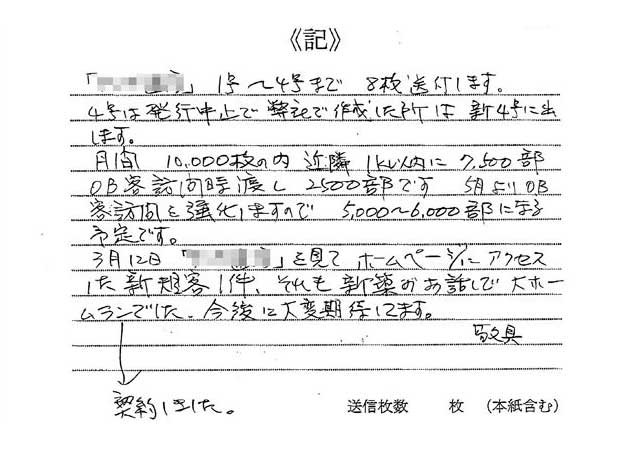 《記》
「 」 1号〜4号まで 8枚送付します。
4号は発行中止で弊社で作成した所は新4号に出
します。
月間 10,000枚の内 近隣1km以内に 7,500部
OB客訪問時渡し 2500部です 5月よりOB
客訪問を強化しますので 5,000〜6,000部になる
予定です。
3月12日 「 」を見てホームページにアクセス
した新規客1件、それも新築のお話しで大ホー
ムランでした、今後に大変期待してます。
敬具
契約しました。
送信枚数 枚 (本紙含む)